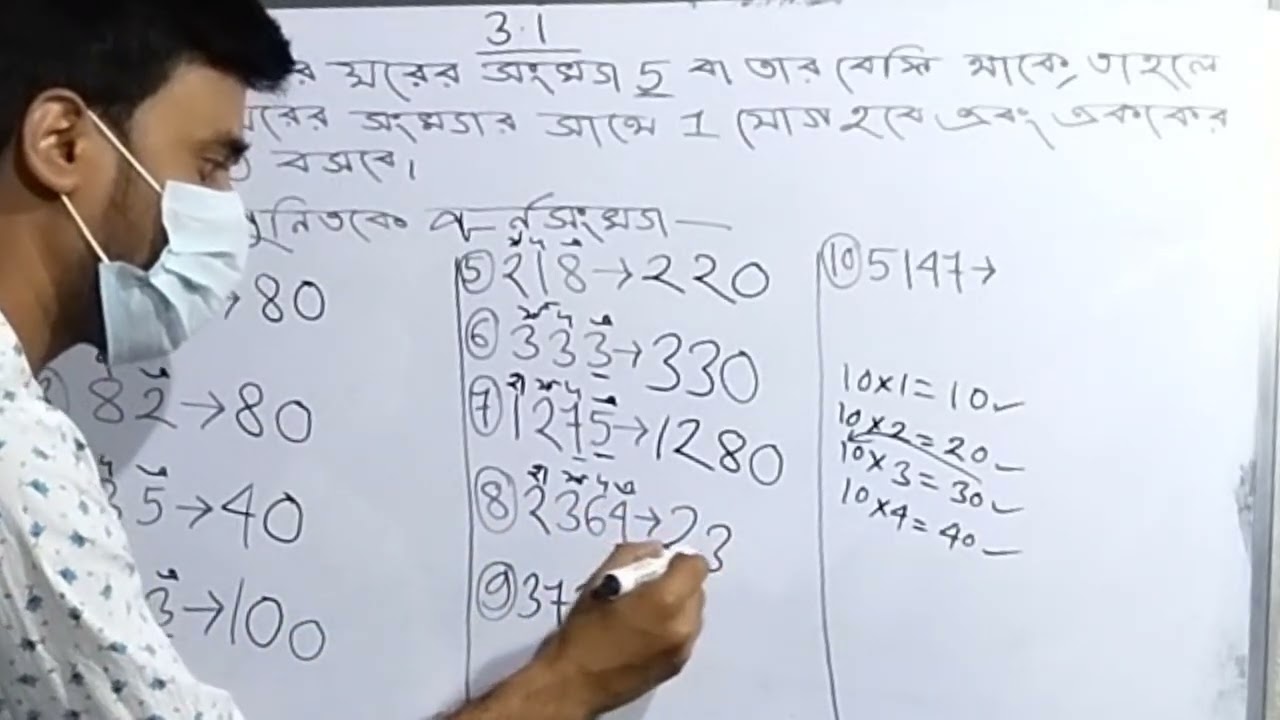 3.1
র ঘরের সংখ্যা 5 বা তার বেশি থাকে, তাহলে
ঘরের সংখ্যার সাথে 1 যোগ হবে এবং এককের
0 বসবে।
গুনিতকে পূর্নসংখ্যা —
→ 80
82 → 80
35 → 40
3 → 100
⑤ 218 → 220
⑥ 333 → 330
⑦ 1275 → 1280
⑧ 2364 → 23
⑨ 37
⑩ 5147 →
10×1= 10✓
10×2=20
10×3=30✓
10×4=40